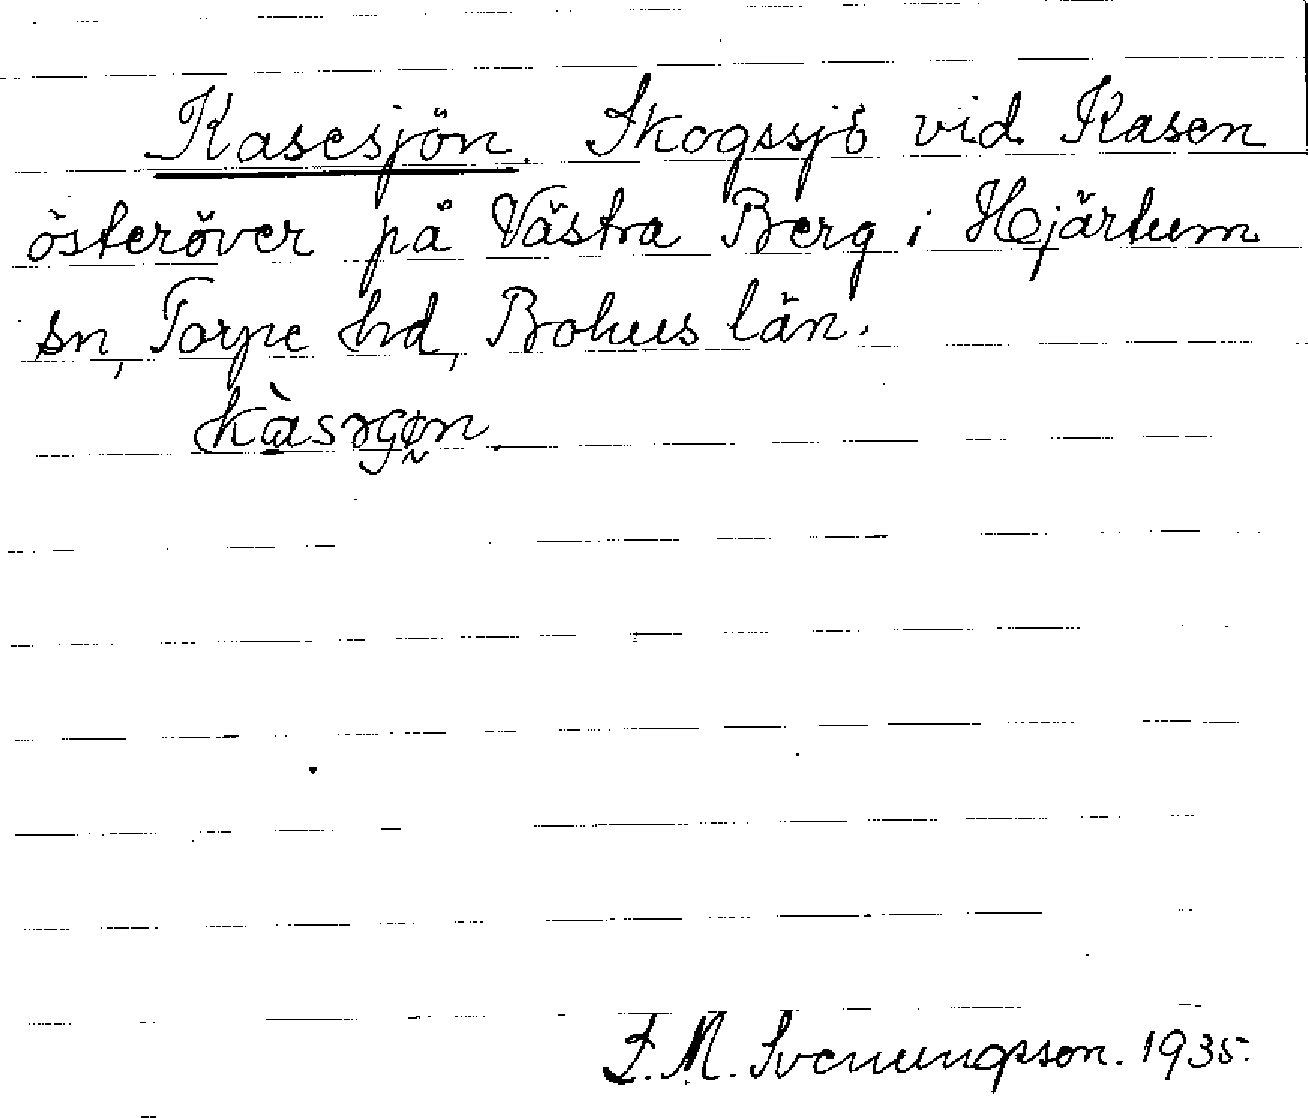 Kasesjön. Skogssjö vid Kasen
österöver på Västra Berg i Hjärtum
sn, Torpe hd, Bohus län.
1935.